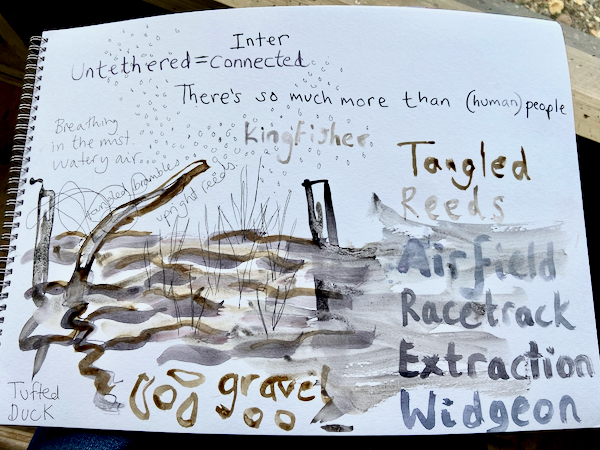 Inter
Untethered = Connected
There's so much more than (human) people
Breathing
in the mist
watery air
Kingfisher
tangled brambles
upright reeds
Tangled
Reeds
Airfield
Racetrack
Extraction
Widgeon
gravel
Tufted
Duck